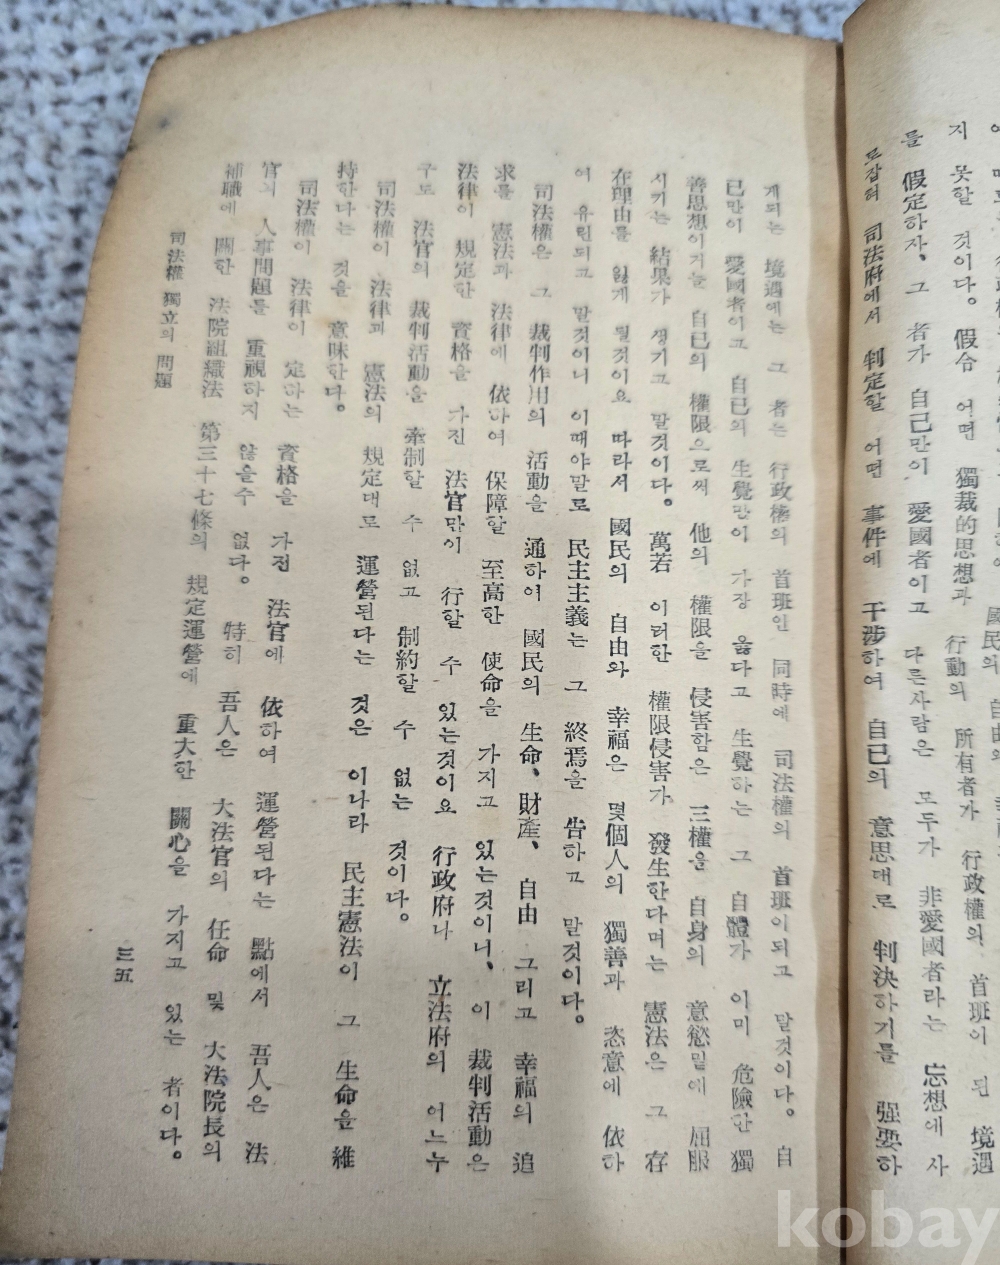 지 못할 것이다。 假令 어떤 獨裁的思想과 行動의 所有者가 行政權의 首班이 된 境遇
를 假定하자、 그 者가 自己만이 愛國者이고 다른사람은 모두가 非愛國者라는 忘想에 사
로잡혀 司法府에서 判定할 어떤 事件에 干涉하여 自己의 意思대로 判決하기를 强要하
게되는 境遇에는 그 者는 行政權의 首班인 同時에 司法權의 首班이되고 말것이다。 自
己만이 愛國者이고 自己의 生覺만이 가장 옳다고 生覺하는 그 自體가 이미 危險한 獨
善思想이거늘 自己의 權限으로써 他의 權限을 侵害함은 三權을 自身의 意慾밑에 屈服
시키는 結果가 생기고 말것이다。 萬若 이러한 權限侵害가 發生한다며는 憲法은 그 存
在理由를 잃게 될것이요 따라서 國民의 自由와 幸福은 몇個人의 獨善과 恣意에 依하
여 유린되고 말것이니 이때야말로 民主主義는 그 終焉을 告하고 말것이다。
司法權은 그 裁判作用의 活動을 通하여 國民의 生命、財產、自由 그리고 幸福의 追
求를 憲法과 法律에 依하여 保障할 至高한 使命을 가지고 있는것이니、 이 裁判活動은
法律이 規定한 資格을 가진 法官만이 行할 수 있는것이요 行政府나 立法府의 어느누
구도 法官의 裁判活動을 牽制할 수 없고 制約할 수 없는 것이다。
司法權이 法律과 憲法의 規定대로 運營된다는 것은 이나라 民主憲法이 그 生命을 維
持한다는 것을 意味한다。
司法權이 法律이 定하는 資格을 가전 法官에 依하여 運營된다는 點에서 吾人은 法
官의 人事問題를 重視하지 않을수 없다。 特히 吾人은 大法官의 任命 및 大法院長의
補職에 關한 法院組織法 第三十七條의 規定運營에 重大한 關心을 가지고 있는 者이다。
司法權 獨立의 問題
三五
kobay